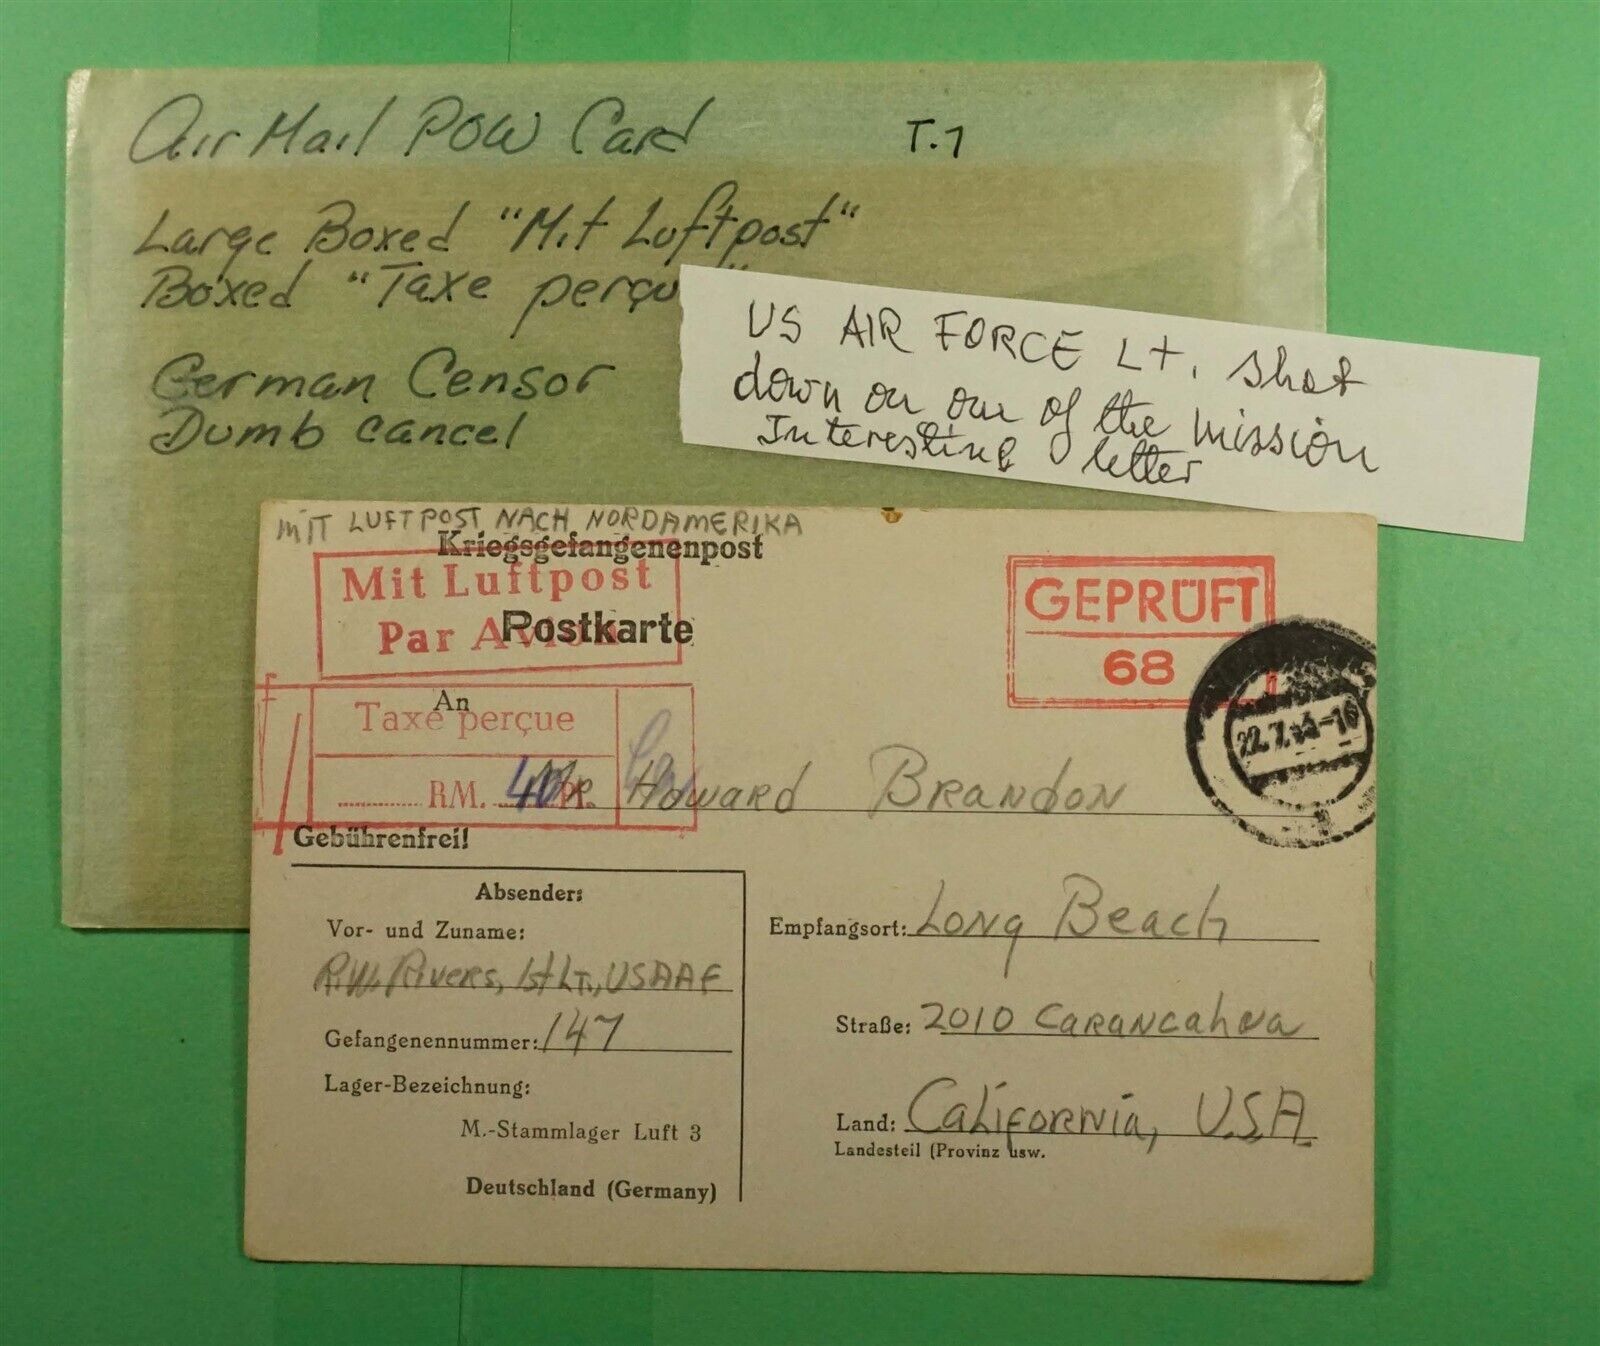 Air Mail POW Card
T.1
Large Boxed "Mit Luftpost"
Boxed "Taxe perçu
German Censor
Dumb cancel
US AIR FORCE Lt. shot
down on our of the mission
Interesting letter
MIT LUFTPOST NACH NORDAMERIKA
Kriegsgefangenenpost
Mit Luftpost
Par Avion
Postkarte
GEPRÜFT
68
22.7. -16
An
Taxe perçue
RM. 40 Pf.
Mr Howard Brandon
Gebührenfrei!
Absender:
Vor- und Zuname:
R.W. Rivers, 1st Lt., USAAF
Gefangenennummer: 147
Lager-Bezeichnung:
M.-Stammlager Luft 3
Deutschland (Germany)
Empfangsort: Long Beach
Straße: 2010 Carancahua
Land: California, U.S.A.
Landesteil (Provinz usw.